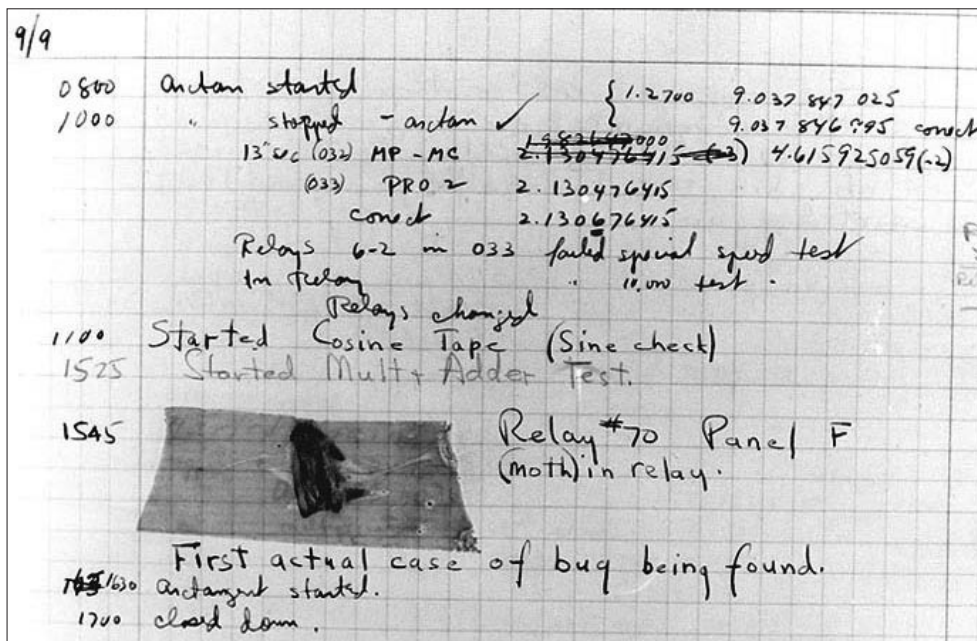 9/9
0800 arctan started { 1.2700 9.037 847 025
1000 " stopped - arctan ✓ 9.037 846 995 conect
13" sec (032) MP - MC 2.130476415 4.615925059(-2)
(033) PRO 2 2.130476415
conect 2.130676415
Relays 6-2 in 033 failed special speed test
In Relay " 10,000 test .
Relays changed
1100 Started Cosine Tape (Sine check)
1525 Started Mult + Adder Test.
1545 Relay #70 Panel F
(moth) in relay.
First actual case of bug being found.
1630 arctangent started.
1700 closed down.